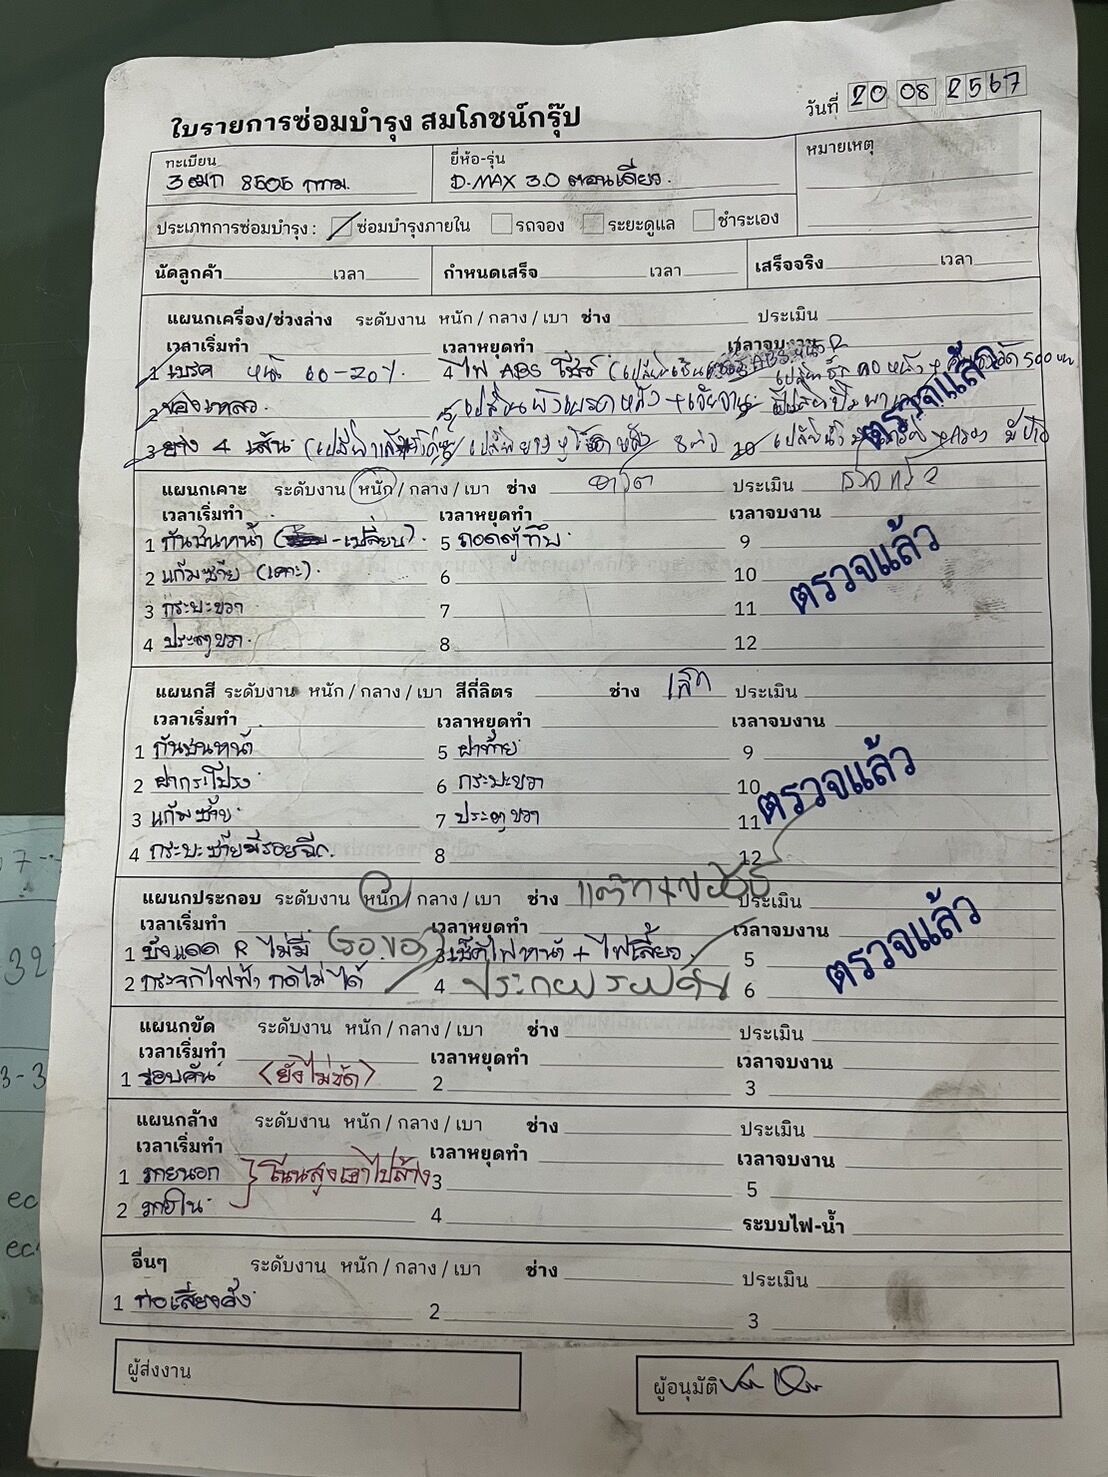 ใบรายการซ่อมบำรุง สมโภชน์กรุ๊ป
วันที่ 20 08 2567
ทะเบียน
3ฒก 8505 กทม.
ยี่ห้อ-รุ่น
D-MAX 3.0 ตอนเดียว.
หมายเหตุ
ประเภทการซ่อมบำรุง : ซ่อมบำรุงภายใน รถจอง ระยะดูแล ชำระเอง
นัดลูกค้า เวลา กำหนดเสร็จ เวลา เสร็จจริง เวลา
แผนกเครื่อง/ช่วงล่าง ระดับงาน หนัก / กลาง / เบา ช่าง ประเมิน
เวลาเริ่มทำ เวลาหยุดทำ เวลาจบงาน
1 เบรค หน้า 4 ไฟ ABS โชว์
2 ของเหลว. 5 เปลี่ยนผ้าเบรคหลัง
3 ยาง 4 เส้น
ตรวจแล้ว
แผนกเคาะ ระดับงาน หนัก / กลาง / เบา ช่าง ประเมิน
เวลาเริ่มทำ เวลาหยุดทำ เวลาจบงาน
1 กันชนหน้า ( -เปลี่ยน) 5 ถอดตู้ทึบ 9
2 แก้มซ้าย (เคาะ) 6 10
3 กระบะขวา 7 11
4 ประตูขวา 8 12
ตรวจแล้ว
แผนกสี ระดับงาน หนัก / กลาง / เบา สีกี่ลิตร ช่าง เล็ก ประเมิน
เวลาเริ่มทำ เวลาหยุดทำ เวลาจบงาน
1 กันชนหน้า 5 ฝาท้าย 9
2 ฝากระโปรง 6 กระบะขวา 10
3 แก้มซ้าย 7 ประตูขวา 11
4 กระบะซ้ายมีรอยฉีก. 8 12
ตรวจแล้ว
แผนกประกอบ ระดับงาน หนัก / กลาง / เบา ช่าง ประเมิน
เวลาเริ่มทำ เวลาหยุดทำ เวลาจบงาน
1 บังแดด R ไม่มี (รอของ) 3 เช็คไฟหน้า + ไฟเลี้ยว 5
2 กระจกไฟฟ้า กดไม่ได้ 4 ประกอบรอบคัน 6
ตรวจแล้ว
แผนกขัด ระดับงาน หนัก / กลาง / เบา ช่าง ประเมิน
เวลาเริ่มทำ เวลาหยุดทำ เวลาจบงาน
1 รอบคัน (ยังไม่ขัด) 2 3
แผนกล้าง ระดับงาน หนัก / กลาง / เบา ช่าง ประเมิน
เวลาเริ่มทำ เวลาหยุดทำ เวลาจบงาน
1 ภายนอก โนนสูงเอาไปล้าง 3 5
2 ภายใน 4 ระบบไฟ-น้ำ
อื่นๆ ระดับงาน หนัก / กลาง / เบา ช่าง ประเมิน
1 ท่อเสียงดัง 2 3
ผู้ส่งงาน
ผู้อนุมัติ